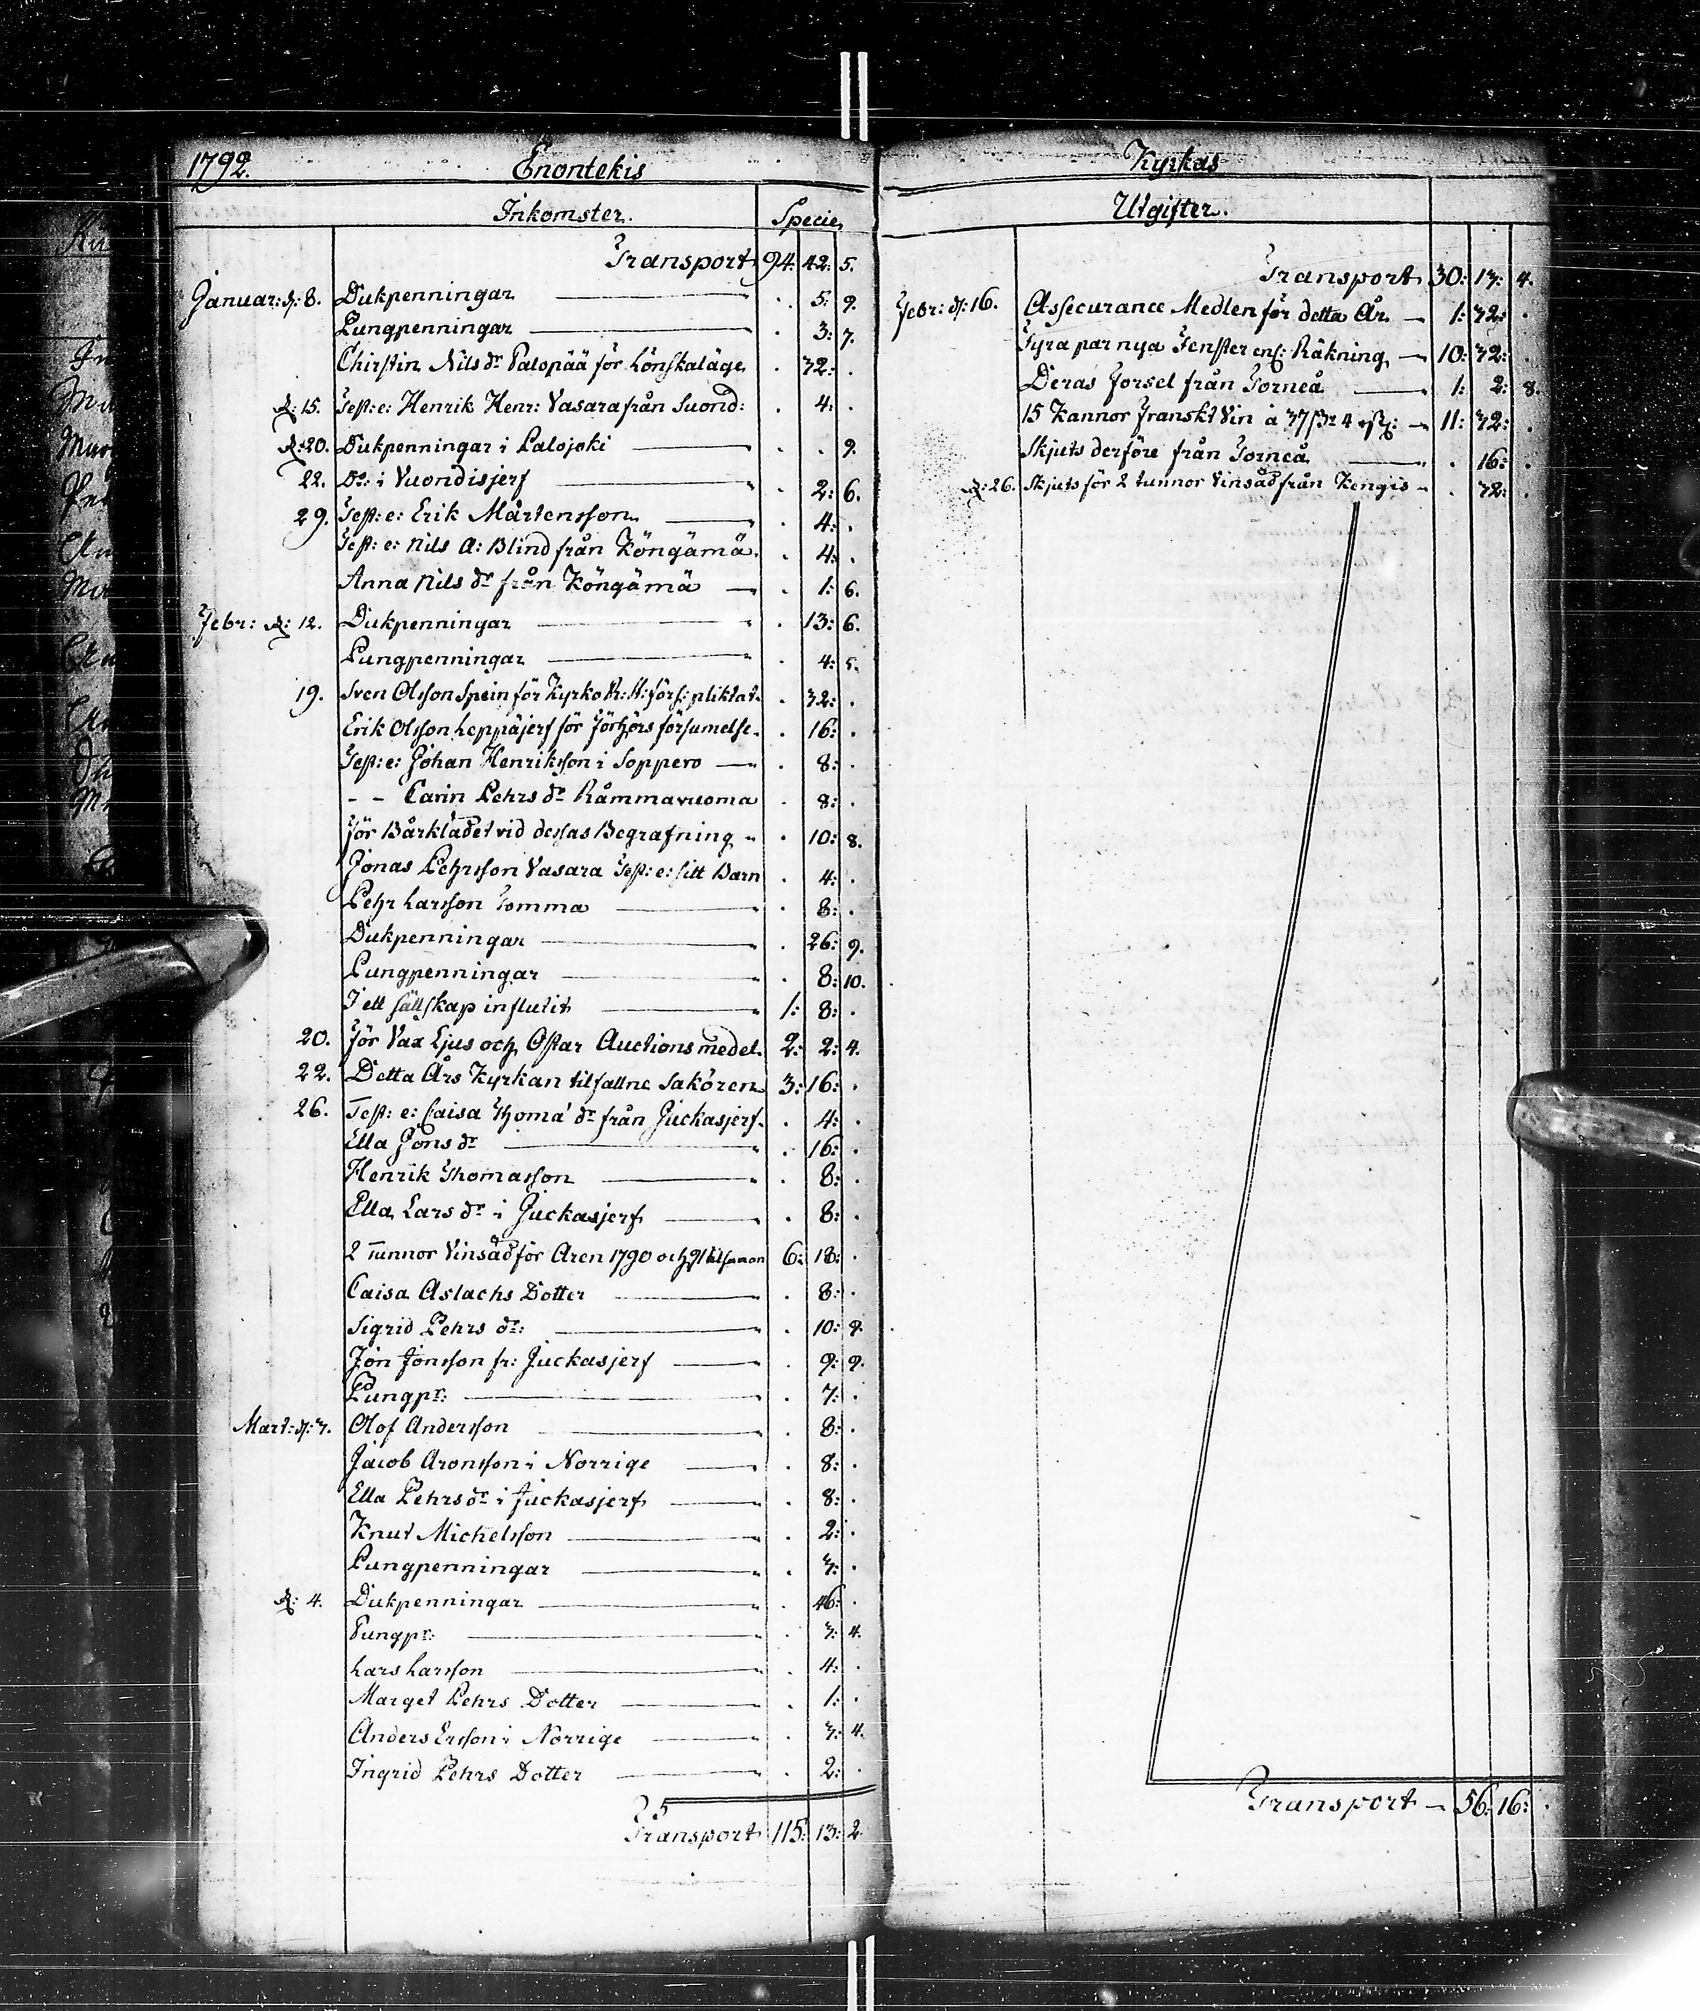 1792. Enontekis
Inkomster. Specie
Transport 94: 42: 5.
Januar: d: 8. Dukpenningar . 5: 9.
Pungpenningar . 3: 7.
Chirstin Nils dr Palopää för Lönskaläge . 32: .
d: 15. Test: e: Henrik Henr: Vasara från Suond: . 4: .
d: 20. Dukpenningar i Palojoki . . 9.
22. Do: i Vuondisjerf . 2: 6.
29. Test: e: Erik Mårtensson . 4: .
Test: e: Nils A: Blind från Köngämä . 4: .
Anna Nils dr från Köngämä . 1: 6.
Febr: d: 12. Dukpenningar . 13: 6.
Pungpenningar . 4: 5.
19. Sven Olsson Spein för Kyrko R: st: förs: pliktat . 32: .
Erik Olsson Leppäjerf för Förhörs försumelse . 16: .
Test: e: Johan Henriksson i Soppero . 8: .
- - Carin Pehrs dr Råmmavuoma . 8: .
för Bårklädet vid dessas Begrafning . 10: 8.
Jonas Pehrsson Vasara Test: e: sitt Barn . 4: .
Pehr Larsson Tomma . 8: .
Dukpenningar . 26: 9.
Pungpenningar . 8: 10.
I ett sällskap influtit 1: 8: .
20. för Vax Ljus och Ostar Auctions medel 2: 2: 4.
22. Detta Års Kyrkan tilfallne Sakören 3: 16: .
26. Test: e: Caisa Thomæ dr från Juckasjerf . 4: .
Ella Jöns dr . 16: .
Henrik Thomasson . 8: .
Ella Lars dr i Juckasjerf . 8: .
2 Tunnor Vinsäd för Åren 1790 och 91 tilsamman 6: 18: .
Caisa Aslachs Dotter . 8: .
Sigrid Pehrs dr: . 10: 9.
Jön Jönsson fr: Juckasjerf . 9: 9.
Pungpr: . 7: .
Mart: d: 3. Olof Andersson . 8: .
Jacob Aronsson i Norrige . 8: .
Ella Pehrs dr i Juckasjerf . 8: .
Knut Michelsson . 2: .
Pungpenningar . 3: .
d: 4. Dukpenningar . 46: .
Pungpr: . 3: 4.
Lars Larsson . 4: .
Marget Pehrs Dotter . 1: .
Anders Ersson i Norrige . 3: 4.
Ingrid Pehrs Dotter . 2: .
Transport 115: 13: 2.
Kyrkas
Utgifter.
Transport 30: 13: 4.
Febr: d: 16. Assecurance Medlen för detta År 1: 32: .
Fyra par nya Fenster enl: Räkning 10: 32: .
Deras Forsel från Torneå 1: 2: 8.
15 Kannor Franskt Vin à 37 ß 4 11: 32: .
Skjuts derföre från Torneå . 16: .
d: 26. Skjuts för 2 tunnor Vinsäd från Kengis . 32: .
Transport 56: 16: .